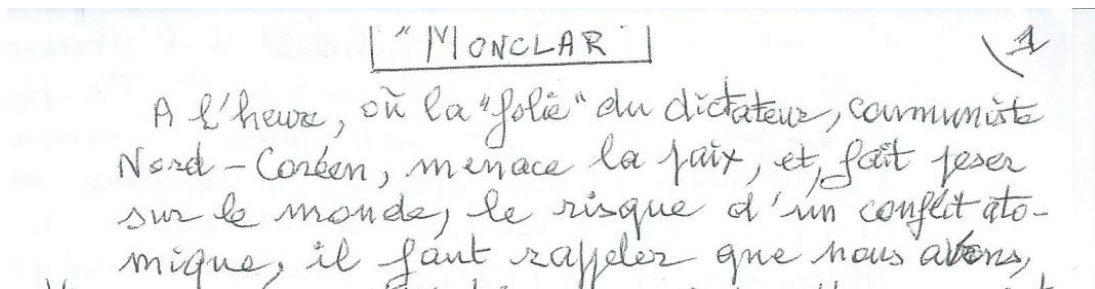 "MONCLAR"
1
A l'heure, où la "folie" du dictateur, communiste
Nord-Coréen, menace la paix, et, fait peser
sur le monde, le risque d'un conflit ato-
mique, il faut rappeler que nous avons,